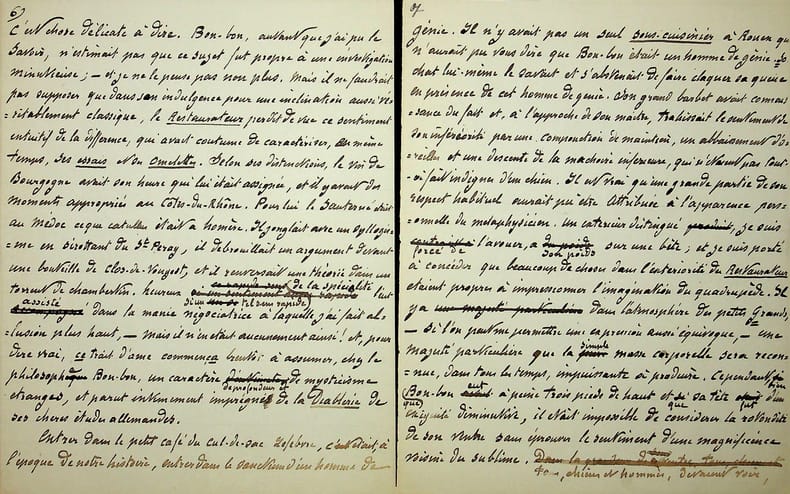 6
C'est chose délicate à dire. Bon-bon, autant que j'ai pu le
savoir, n'estimait pas que ce sujet fut propre à une investigation
minutieuse; — et je ne le pense pas non plus. Mais il ne faudrait
pas supposer que dans son indulgence pour une inclination aussi vé-
=ritablement classique, le Restaurateur perdit de vue ce sentiment
intuitif de la différence, qui avait coutume de caractériser, en même
temps, ses essais et ses omelettes. Selon ses distinctions, le vin de
Bourgogne avait son heure qui lui était assignée, et il y avait des
moments appropriés au Côtes-du-Rhône. Pour lui le Sauterne était
au Médoc ce que Catulle était à Homère. Il jonglait avec un syllogis-
=me en sirotant du St Peray, il débrouillait un argument devant
une bouteille de Clos-de-Vougeot, et il renversait une théorie dans un
torrent de chambertin. heureux
de la spécialité
si un tel sens rapide l'eut
assisté
dans la manie négociatrice à laquelle j'ai fait al-
=lusion plus haut, — mais il n'en était aucunement ainsi! et, pour
dire vrai, ce trait d'ame commença bientôt à assumer, chez le
philosophe Bon-bon, un caractère de mysticisme
de profondeur et
étranges, et parut entièrement imprégné de la Diablerie de
ses chères études allemandes.
Entrer dans le petit café du cul-de-sac Lefebvre, c'eut été, à
l'époque de notre histoire, entrer dans le sanctum d'un homme de
génie. Il n'y avait pas un seul sous-cuisinier à Rouen qui
n'aurait pu vous dire que Bon-bon était un homme de génie. Son
chat lui-même le savait et s'abstenait de faire claquer sa queue
en présence de cet homme de génie. Son grand barbet avait connais-
=sance du fait et, à l'approche de son maître, trahissait le sentiment de
son infériorité par une componction de maintien, un abaissement d'o-
=reilles et une descente de la machoire inférieure, qui n'étaient pas tout-
=à-fait indignes d'un chien. Il est vrai qu'une grande partie de son
respect habituel aurait pu être attribuée à l'apparence per-
=sonnelle du métaphysicien. un extérieur distingué produit, je suis
contraint de l'avouer, a du poids sur une bête; et je suis porté
force de son poids
à considérer que beaucoup de choses dans l'extériorité du Restaurateur
étaient propres à impressionner l'imagination du quadrupède. Il
y a une majesté particulière dans l'atmosphère du petit Grand,
— si l'on peut me permettre une expression aussi équivoque, — une
majesté particulière que la simple masse corporelle sera recon-
=nue, dans tous les temps, impuissante à produire. Cependant, si
Bon-bon eut à peine trois pieds de haut et si sa tête fut
que que
exiguité diminutive, il était impossible de considérer la rotondité
de son ventre sans éprouver le sentiment d'une magnificence
voisine du sublime.
chiens et hommes, devaient voir,